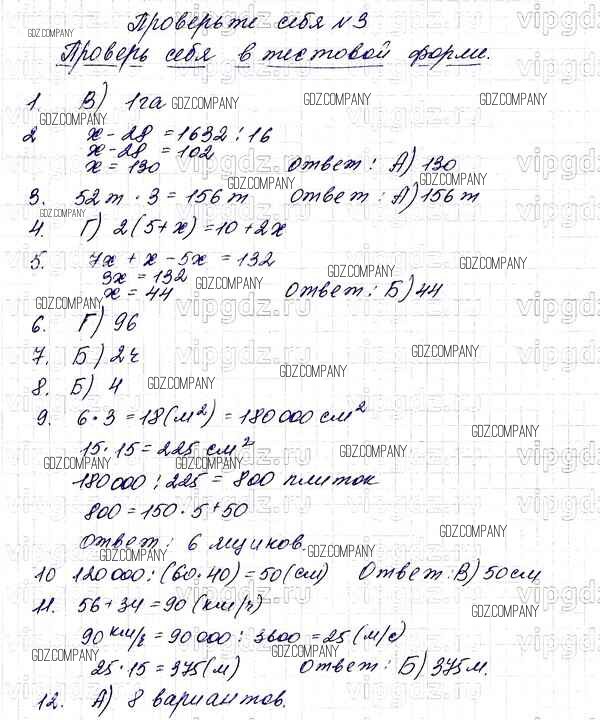 Проверьте себя №3
Проверь себя в тестовой форме.
1. В) 1га
2 x - 28 = 1632 : 16
x - 28 = 102
x = 130 Ответ: А) 130
3. 52т · 3 = 156т Ответ: А) 156т
4. Г) 2(5+x) = 10 + 2x
5. 7x + x - 5x = 132
3x = 132
x = 44 Ответ: Б) 44
6. Г) 96
7. Б) 2ч
8. Б) 4
9. 6·3 = 18(м²) = 180000 см²
15·15 = 225 см²
180000 : 225 = 800 плиток
800 = 150·5 + 50
Ответ: 6 ящиков.
10 120000 : (60·40) = 50(см) Ответ: В) 50см
11. 56 + 34 = 90 (км/ч)
90 км/ч = 90000 : 3600 = 25 (м/с)
25·15 = 375(м) Ответ: Б) 375м.
12. А) 8 вариантов.
GDZ.COMPANY
vipgdz.ru